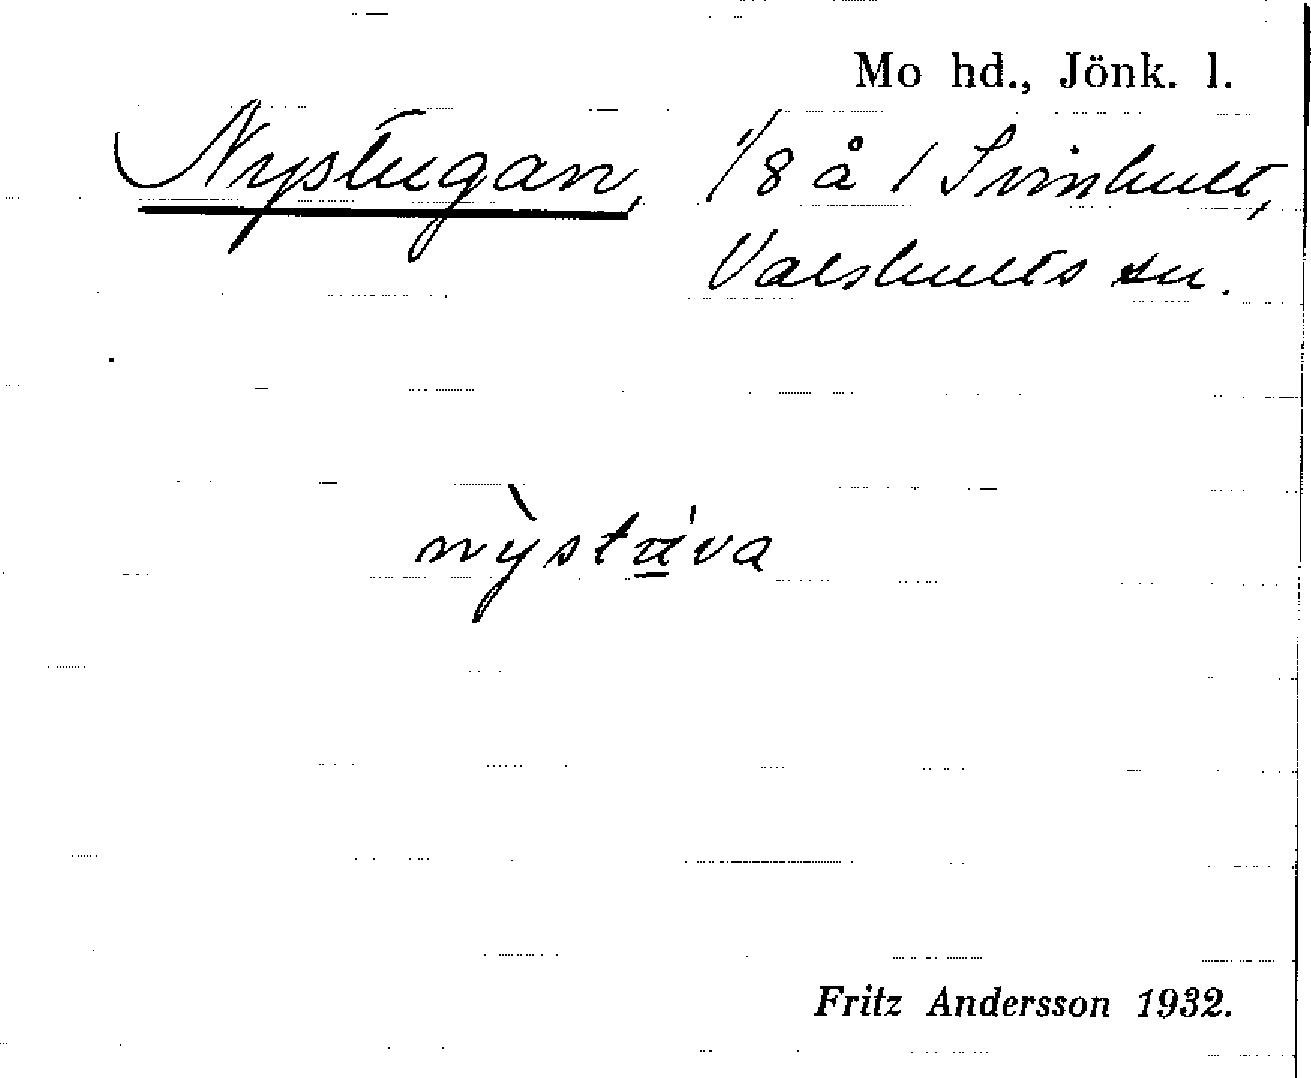 Mo hd., Jönk. l.
Nystugan, 1/8 å 1 Svinhult,
Valshults sn.
nỳstú̲va
Fritz Andersson 1932.